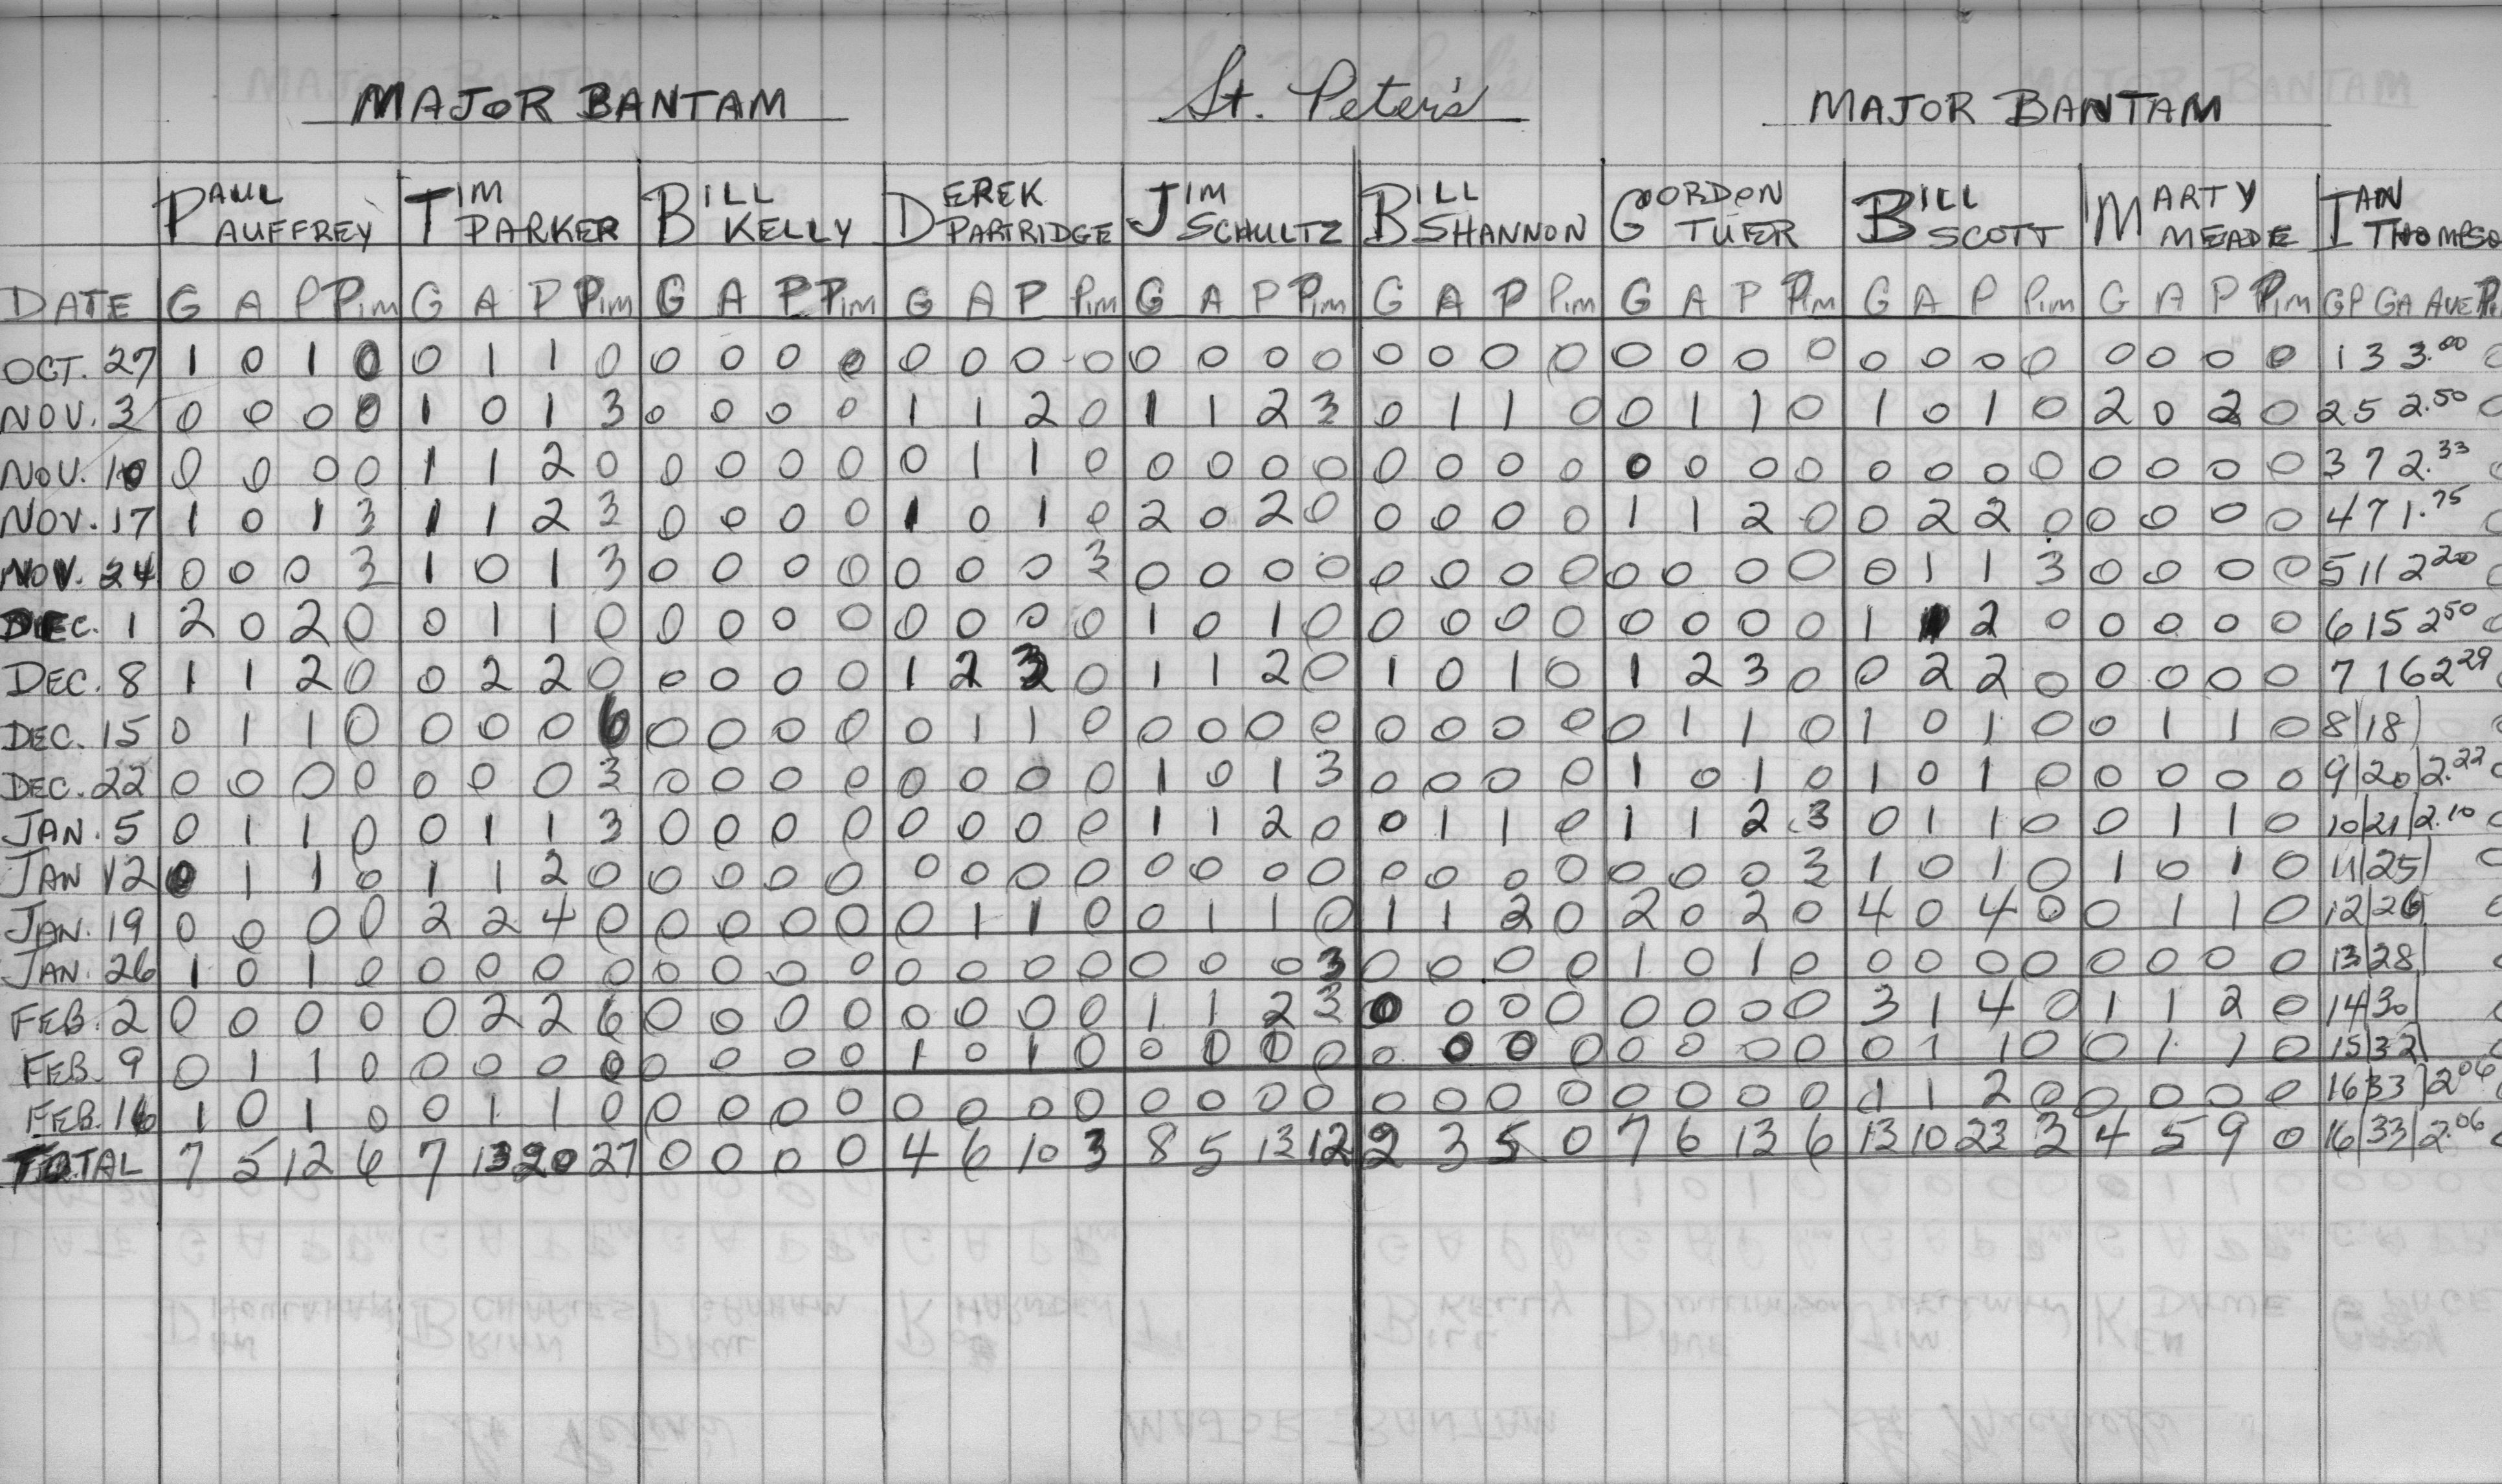 MAJOR BANTAM St. Peter's MAJOR BANTAM
PAUL AUFFREY TIM PARKER BILL KELLY DEREK PARTRIDGE JIM SCHULTZ BILL SHANNON GORDON TUFER BILL SCOTT MARTY MEADE IAN THOMPSO
DATE G A P PIM G A P PIM G A P PIM G A P PIM G A P PIM G A P PIM G A P PIM G A P PIM G A P PIM GP GA AVE
OCT. 27 1 0 1 0 0 1 1 0 0 0 0 0 0 0 0 0 0 0 0 0 0 0 0 0 0 0 0 0 0 0 0 0 0 0 0 0 1 3 3.00 0
NOV. 3 0 0 0 0 1 0 1 3 0 0 0 0 1 1 2 0 1 1 2 3 0 1 1 0 0 1 1 0 1 0 1 0 2 0 2 0 2 5 2.50 0
NOV. 10 0 0 0 0 1 1 2 0 0 0 0 0 0 1 1 0 0 0 0 0 0 0 0 0 0 0 0 0 0 0 0 0 0 0 0 0 3 7 2.33 0
NOV. 17 1 0 1 3 1 1 2 3 0 0 0 0 1 0 1 0 2 0 2 0 0 0 0 0 1 1 2 0 0 2 2 0 0 0 0 0 4 7 1.75 0
NOV. 24 0 0 0 3 1 0 1 3 0 0 0 0 0 0 0 3 0 0 0 0 0 0 0 0 0 0 0 0 0 1 1 3 0 0 0 0 5 11 2 20 0
DEC. 1 2 0 2 0 0 1 1 0 0 0 0 0 0 0 0 0 1 0 1 0 0 0 0 0 0 0 0 0 1 1 2 0 0 0 0 0 6 15 2 50 0
DEC. 8 1 1 2 0 0 2 2 0 0 0 0 0 1 2 3 0 1 1 2 0 1 0 1 0 1 2 3 0 0 2 2 0 0 0 0 0 7 16 2 29 0
DEC. 15 0 1 1 0 0 0 0 6 0 0 0 0 0 1 1 0 0 0 0 0 0 0 0 0 0 1 1 0 1 0 1 0 0 1 1 0 8|18| 0
DEC. 22 0 0 0 0 0 0 0 3 0 0 0 0 0 0 0 0 1 0 1 3 0 0 0 0 1 0 1 0 1 0 1 0 0 0 0 0 9|20|2.22 0
JAN. 5 0 1 1 0 0 1 1 3 0 0 0 0 0 0 0 0 1 1 2 0 0 1 1 0 1 1 2 3 0 1 1 0 0 1 1 0 10|21|2.10 0
JAN 12 0 1 1 0 1 1 2 0 0 0 0 0 0 0 0 0 0 0 0 0 0 0 0 0 0 0 0 3 1 0 1 0 1 0 1 0 11|25| 0
JAN. 19 0 0 0 0 2 2 4 0 0 0 0 0 0 1 1 0 0 1 1 0 1 1 2 0 2 0 2 0 4 0 4 0 0 1 1 0 12|26| 0
JAN. 26 1 0 1 0 0 0 0 0 0 0 0 0 0 0 0 0 0 0 0 3 0 0 0 0 1 0 1 0 0 0 0 0 0 0 0 0 13|28| 0
FEB. 2 0 0 0 0 0 2 2 6 0 0 0 0 0 0 0 0 1 1 2 3 0 0 0 0 0 0 0 0 3 1 4 0 1 1 2 0 14|30| 0
FEB. 9 0 1 1 0 0 0 0 0 0 0 0 0 1 0 1 0 0 0 0 0 0 0 0 0 0 0 0 0 0 1 1 0 0 1 1 0 15|32| 0
FEB. 16 1 0 1 0 0 1 1 0 0 0 0 0 0 0 0 0 0 0 0 0 0 0 0 0 0 0 0 0 1 1 2 0 0 0 0 0 16|33|2 06 0
TOTAL 7 5 12 6 7 13 20 27 0 0 0 0 4 6 10 3 8 5 13 12 2 3 5 0 7 6 13 6 13 10 23 3 4 5 9 0 16|33|2.06 0